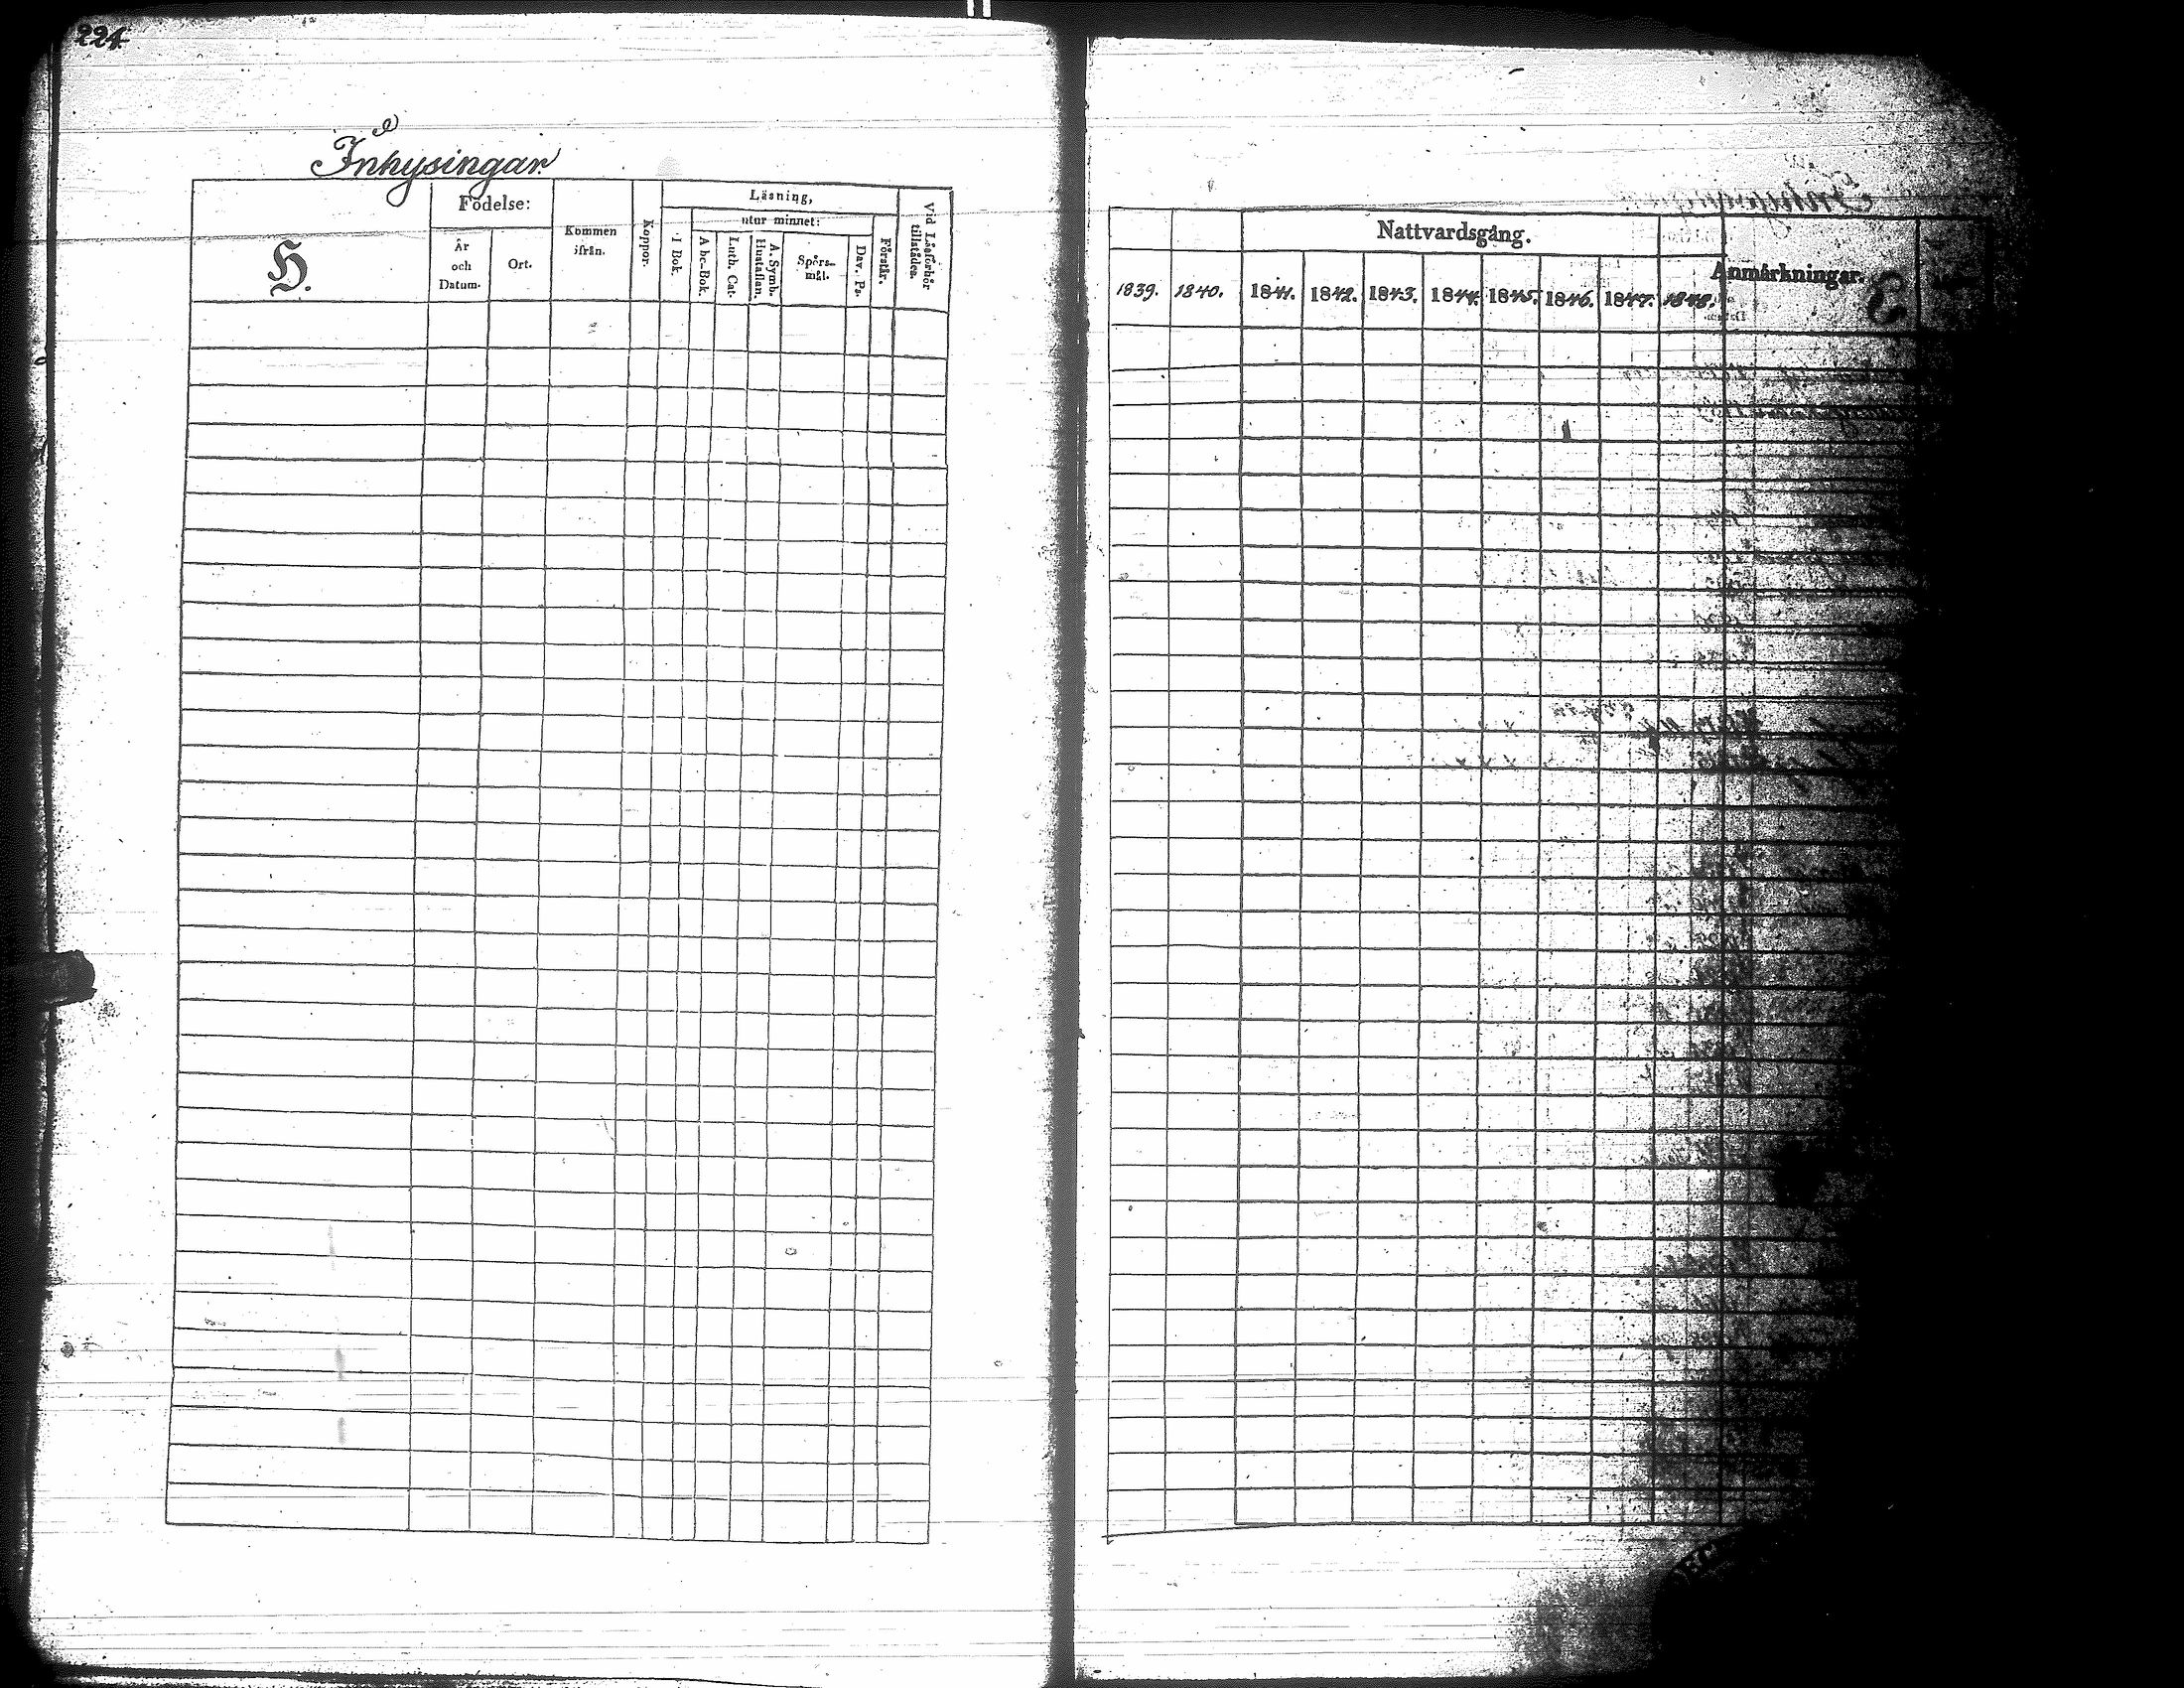 224
Inhysingar.
H.
Födelse:
År
och
Datum.
Ort.
Kommen
ifrån.
Koppor.
Läsning,
I Bok.
utur minnet:
Abc-Bok.
Luth. Cat.
A. Symb.
Hustaflan.
Spörs-
mål.
Dav. Ps.
Förstår.
Vid Läsförhör
tillstädes.
Nattvardsgång.
Anmärkningar.
1839. 1840. 1841. 1842. 1843. 1844. 1845. 1846. 1847. 1848.